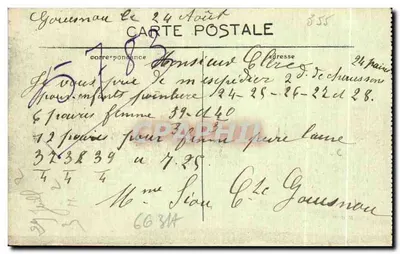 Gouesnou le 24 Août
CARTE POSTALE
correspondance adresse
5783
Monsieur Clerc 24 paires
Je vous prie de m'expédier 2 d. de chaussons
pour enfants pointure 24-25-26-27 et 28.
6 paires femme 39-et 40
12 paires pour femme pure laine
37 38 39 a 7.25
4 4 4
Mme Siou Cle Gouesnou
663M